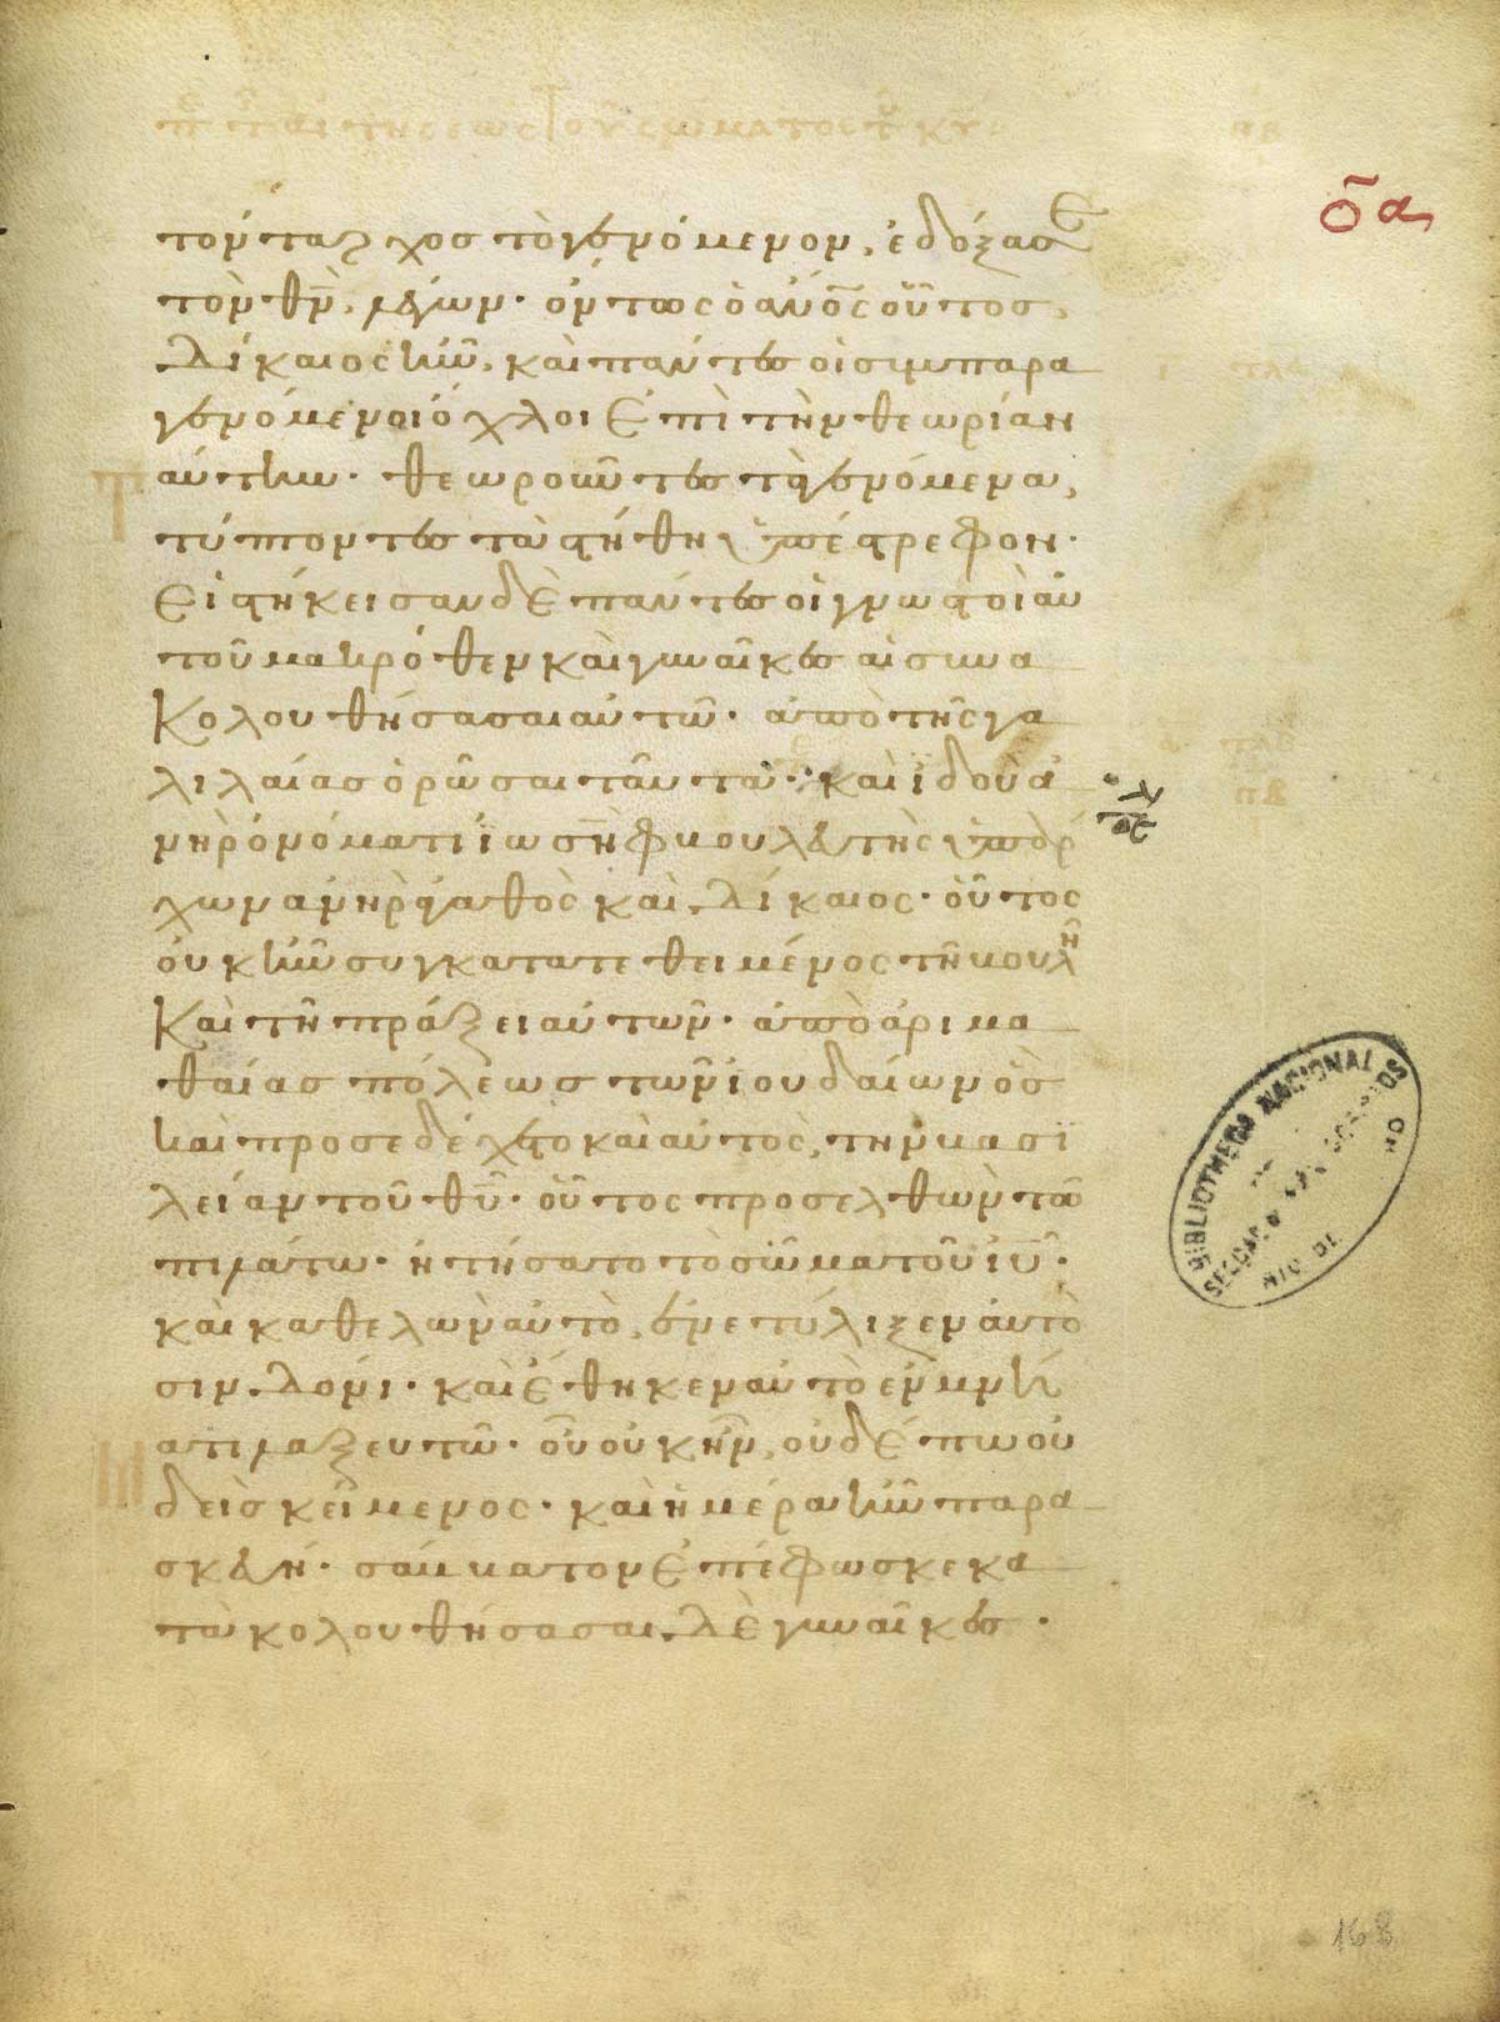 π τ αιτησεως του σωματος τ κυ
οα
τονταρχος τὸ γενόμενον, ἐδόξασε
τὸν θν, λέγων· όντως ὁ ανος οὗτος,
δίκαιος ἦν, καὶ πάντες οἱ συμπαρα
γενόμενοι όχλοι ἐπὶ τὴν θεωρίαν
αύτην· θεωροῦντες τὰ γενόμενα,
τύπτοντες τὰ στήθη ὑπέστρεφον·
Εἱστήκεισαν δὲ πάντες οἱ γνωστοὶ αὐ
τοῦ μακρόθεν καὶ γυναῖκες αἱ συνα
κολουθήσασαι αὐτῶ· ἀπὸ τῆς γα
λιλαίας ὁρῶσαι ταῦτα· καὶ ἰδοὺ ἀ
νὴρ ὀνόματι ἰωσὴφ βουλευτὴς ὑπάρ
χων ἀνὴρ ἀγαθὸς καὶ δίκαιος· οὗτος
οὐκ ἦν συγκατατεθειμένος τῆ βουλῆ
καὶ τῆ πράξει αὐτῶν· ἀπὸ ἀριμα
θαίας πόλεως τῶν ἰουδαίων ὃς
καὶ προσεδέχετο καὶ αὐτὸς, τὴν βασι
λείαν τοῦ θυ· οὗτος προσελθὼν τῶ
πιλάτω· ἠτήσατο τὸ σῶμα τοῦ ιυ·
καὶ καθελὼν αὐτὸ, ἐνετύλιξεν αὐτὸ
σινδόνι· καὶ ἔθηκεν αὐτὸ ἐν μνή
ατι λαξευτῶ· οὗ οὐκ ἦν, οὐδέπω οὐ
δεὶς κείμενος· καὶ ἡμέρα ἦν παρα
σκευή· σάββατον ἐπέφωσκε κα
τακολουθήσασαι δὲ γυναῖκες·
BIBLIOTHECA NACIONAL
RIO DE
168